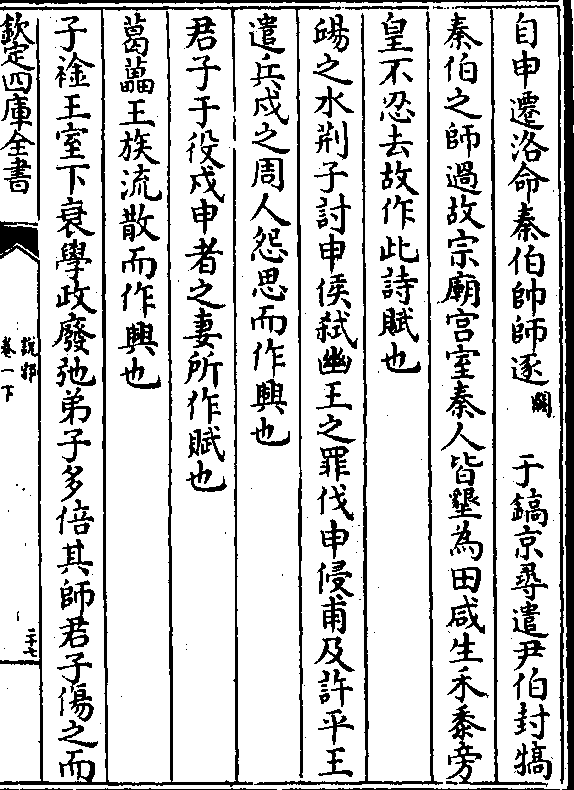 自申遷洛命秦伯帥師逐闕 于鎬京尋遣尹伯封犒
秦伯之師過故宗廟宫室秦人皆墾為田咸生禾黍旁
皇不忍去故作此詩賦也
㫾之水荆子討申侯弑幽王之罪伐申侵甫及許平王
遣兵戍之周人怨思而作興也
君子于役戍申者之妻所作賦也
葛藟王族流散而作興也
子衿王室下衰學政廢弛弟子多倍其師君子傷之而
欽定四庫全書
説郛
卷一下
二十七